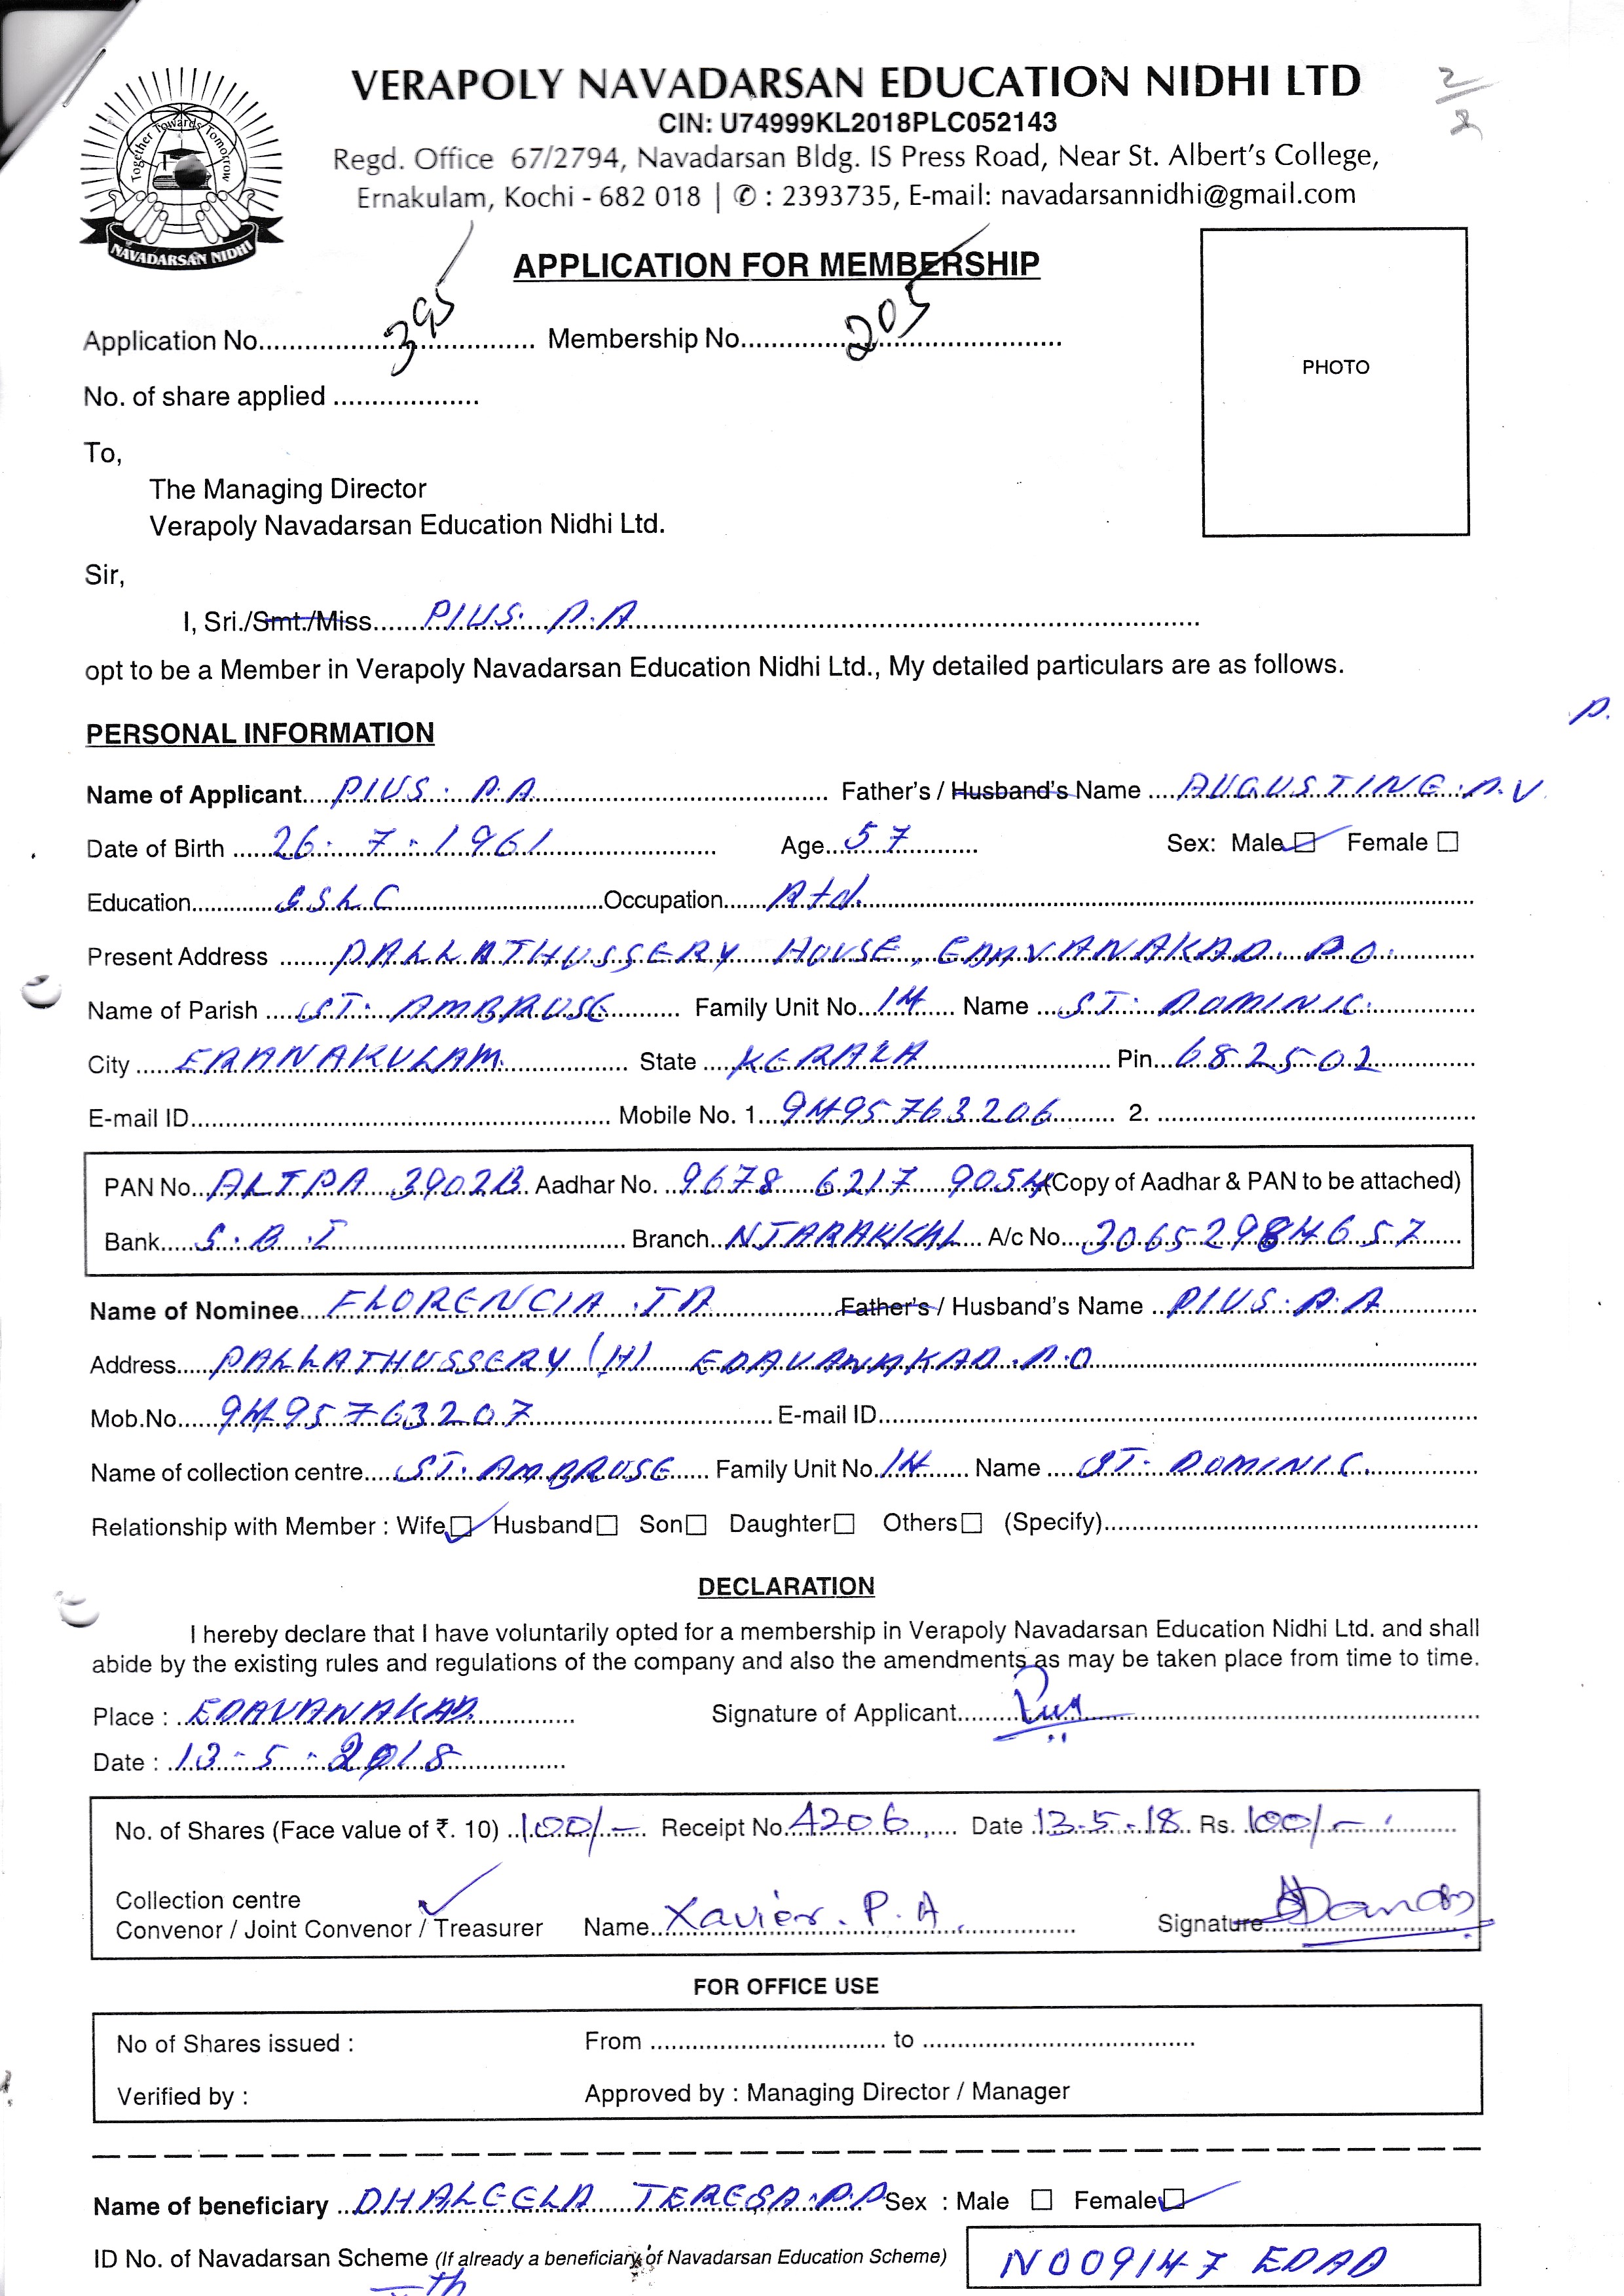 VERAPOLY NAVADARSAN EDUCATION NIDHI LTD
CIN: U74999KL2018PLC052143
Regd. Office 67/2794, Navadarsan Bldg. IS Press Road, Near St. Albert's College,
Ernakulam, Kochi - 682 018 | ✆ : 2393735, E-mail: navadarsannidhi@gmail.com
2/2
Together Towards Tomorrow
NAVADARSAN NIDHI
APPLICATION FOR MEMBERSHIP
PHOTO
Application No. 395 Membership No. 205
No. of share applied
To,
The Managing Director
Verapoly Navadarsan Education Nidhi Ltd.
Sir,
I, Sri./Smt./Miss PIUS. P.A
opt to be a Member in Verapoly Navadarsan Education Nidhi Ltd., My detailed particulars are as follows.
P.
PERSONAL INFORMATION
Name of Applicant PIUS. P.A Father's / Husband's Name AUGUSTINE. P.V
Date of Birth 26. 7. 1961 Age 57 Sex: Male Female
Education SSLC Occupation Rtd.
Present Address PALLATHUSSERY HOUSE, EDAVANAKAD. P.O.
Name of Parish ST. AMBROSE Family Unit No. 14 Name ST. DOMINIC.
City ERANAKULAM. State KERALA Pin 682502
E-mail ID Mobile No. 1. 9495763206 2.
PAN No. ALTPA 3902B Aadhar No. 9678 6217 9054 (Copy of Aadhar & PAN to be attached)
Bank S.B.I Branch NJARAKKAL A/c No. 30652984657
Name of Nominee FLORENCIA .T.A Father's / Husband's Name PIUS. P.A
Address PALLATHUSSERY (H) EDAVANAKAD. P.O
Mob.No. 9495763207 E-mail ID
Name of collection centre ST. AMBROSE Family Unit No. 14 Name ST. DOMINIC.
Relationship with Member : Wife Husband Son Daughter Others (Specify)
DECLARATION
I hereby declare that I have voluntarily opted for a membership in Verapoly Navadarsan Education Nidhi Ltd. and shall
abide by the existing rules and regulations of the company and also the amendments as may be taken place from time to time.
Place : EDAVANAKAD. Signature of Applicant Pius
Date : 13-5-2018
No. of Shares (Face value of ₹. 10) 100/- Receipt No. 4206 Date 13-5-18 Rs. 100/-
Collection centre
Convenor / Joint Convenor / Treasurer Name Xavier. P.A. Signature
FOR OFFICE USE
No of Shares issued : From to
Verified by : Approved by : Managing Director / Manager
Name of beneficiary DHALEELA TERESA. P.P Sex : Male Female
ID No. of Navadarsan Scheme (If already a beneficiary of Navadarsan Education Scheme) N009147 EDAD